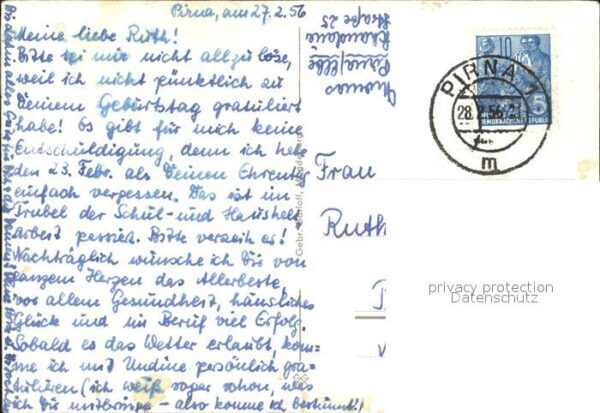 Pirna, am 27.2.56
Meine liebe Ruth!
Bitte sei mir nicht allzu böse,
weil ich nicht pünktlich zu
Deinem Geburtstag gratuliert
habe! Es gibt für mich keine
Entschuldigung, denn ich habe
den 23. Febr. als Deinen Ehrentag
einfach vergessen. Das ist im
Trubel der Schul- und Haushalt-
arbeit passiert. Bitte verzeih es!
Nachträglich wünsche ich Dir von
ganzem Herzen das Allerbeste
vor allem Gesundheit, häusliches
Glück und im Beruf viel Erfolg.
Sobald es das Wetter erlaubt, kom-
me ich mit Undine persönlich gra-
tulieren (ich weiß sogar schon, was
ich Dir mitbringe – also komme ich bestimmt!)
Bis dahin alles Gute
Pirna/Elbe
Straße 25
Gebr. Garloff, Magdeburg
10
5
DEUTSCHE
DEMOKRATISCHE REPUBLIK
PIRNA 1
28.2.56
m
Frau
Ruth
privacy protection
Datenschutz